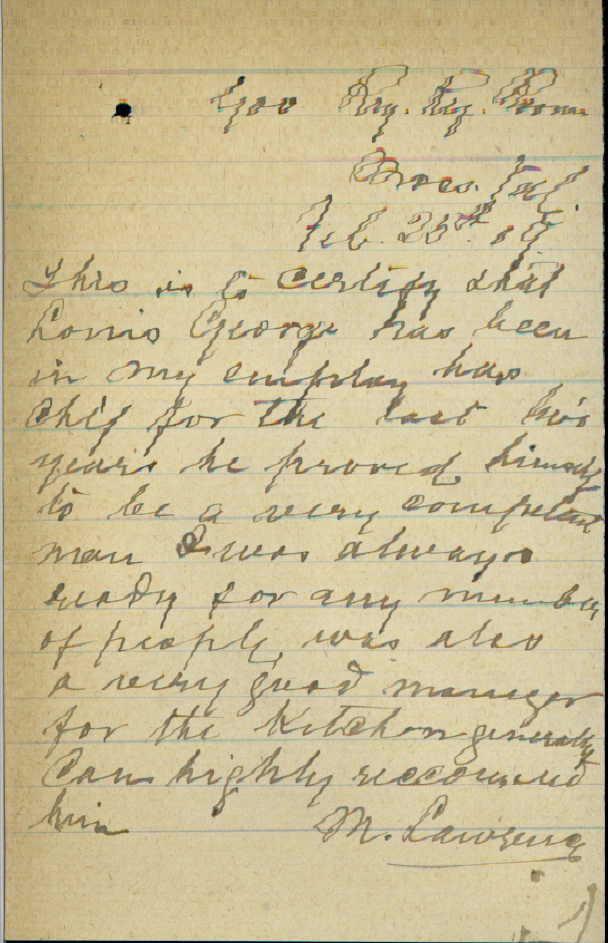 Ry. Ry. Room
Cal.
Feb. 25th
This is to certify that
Louis George has been
in my employ has
chef for the last two
years he proved himself
to be a very competent
man & was always
ready for any number
of people, was also
a very good manager
for the Kitchen generally
Can highly reccomend
him M. Lawrence